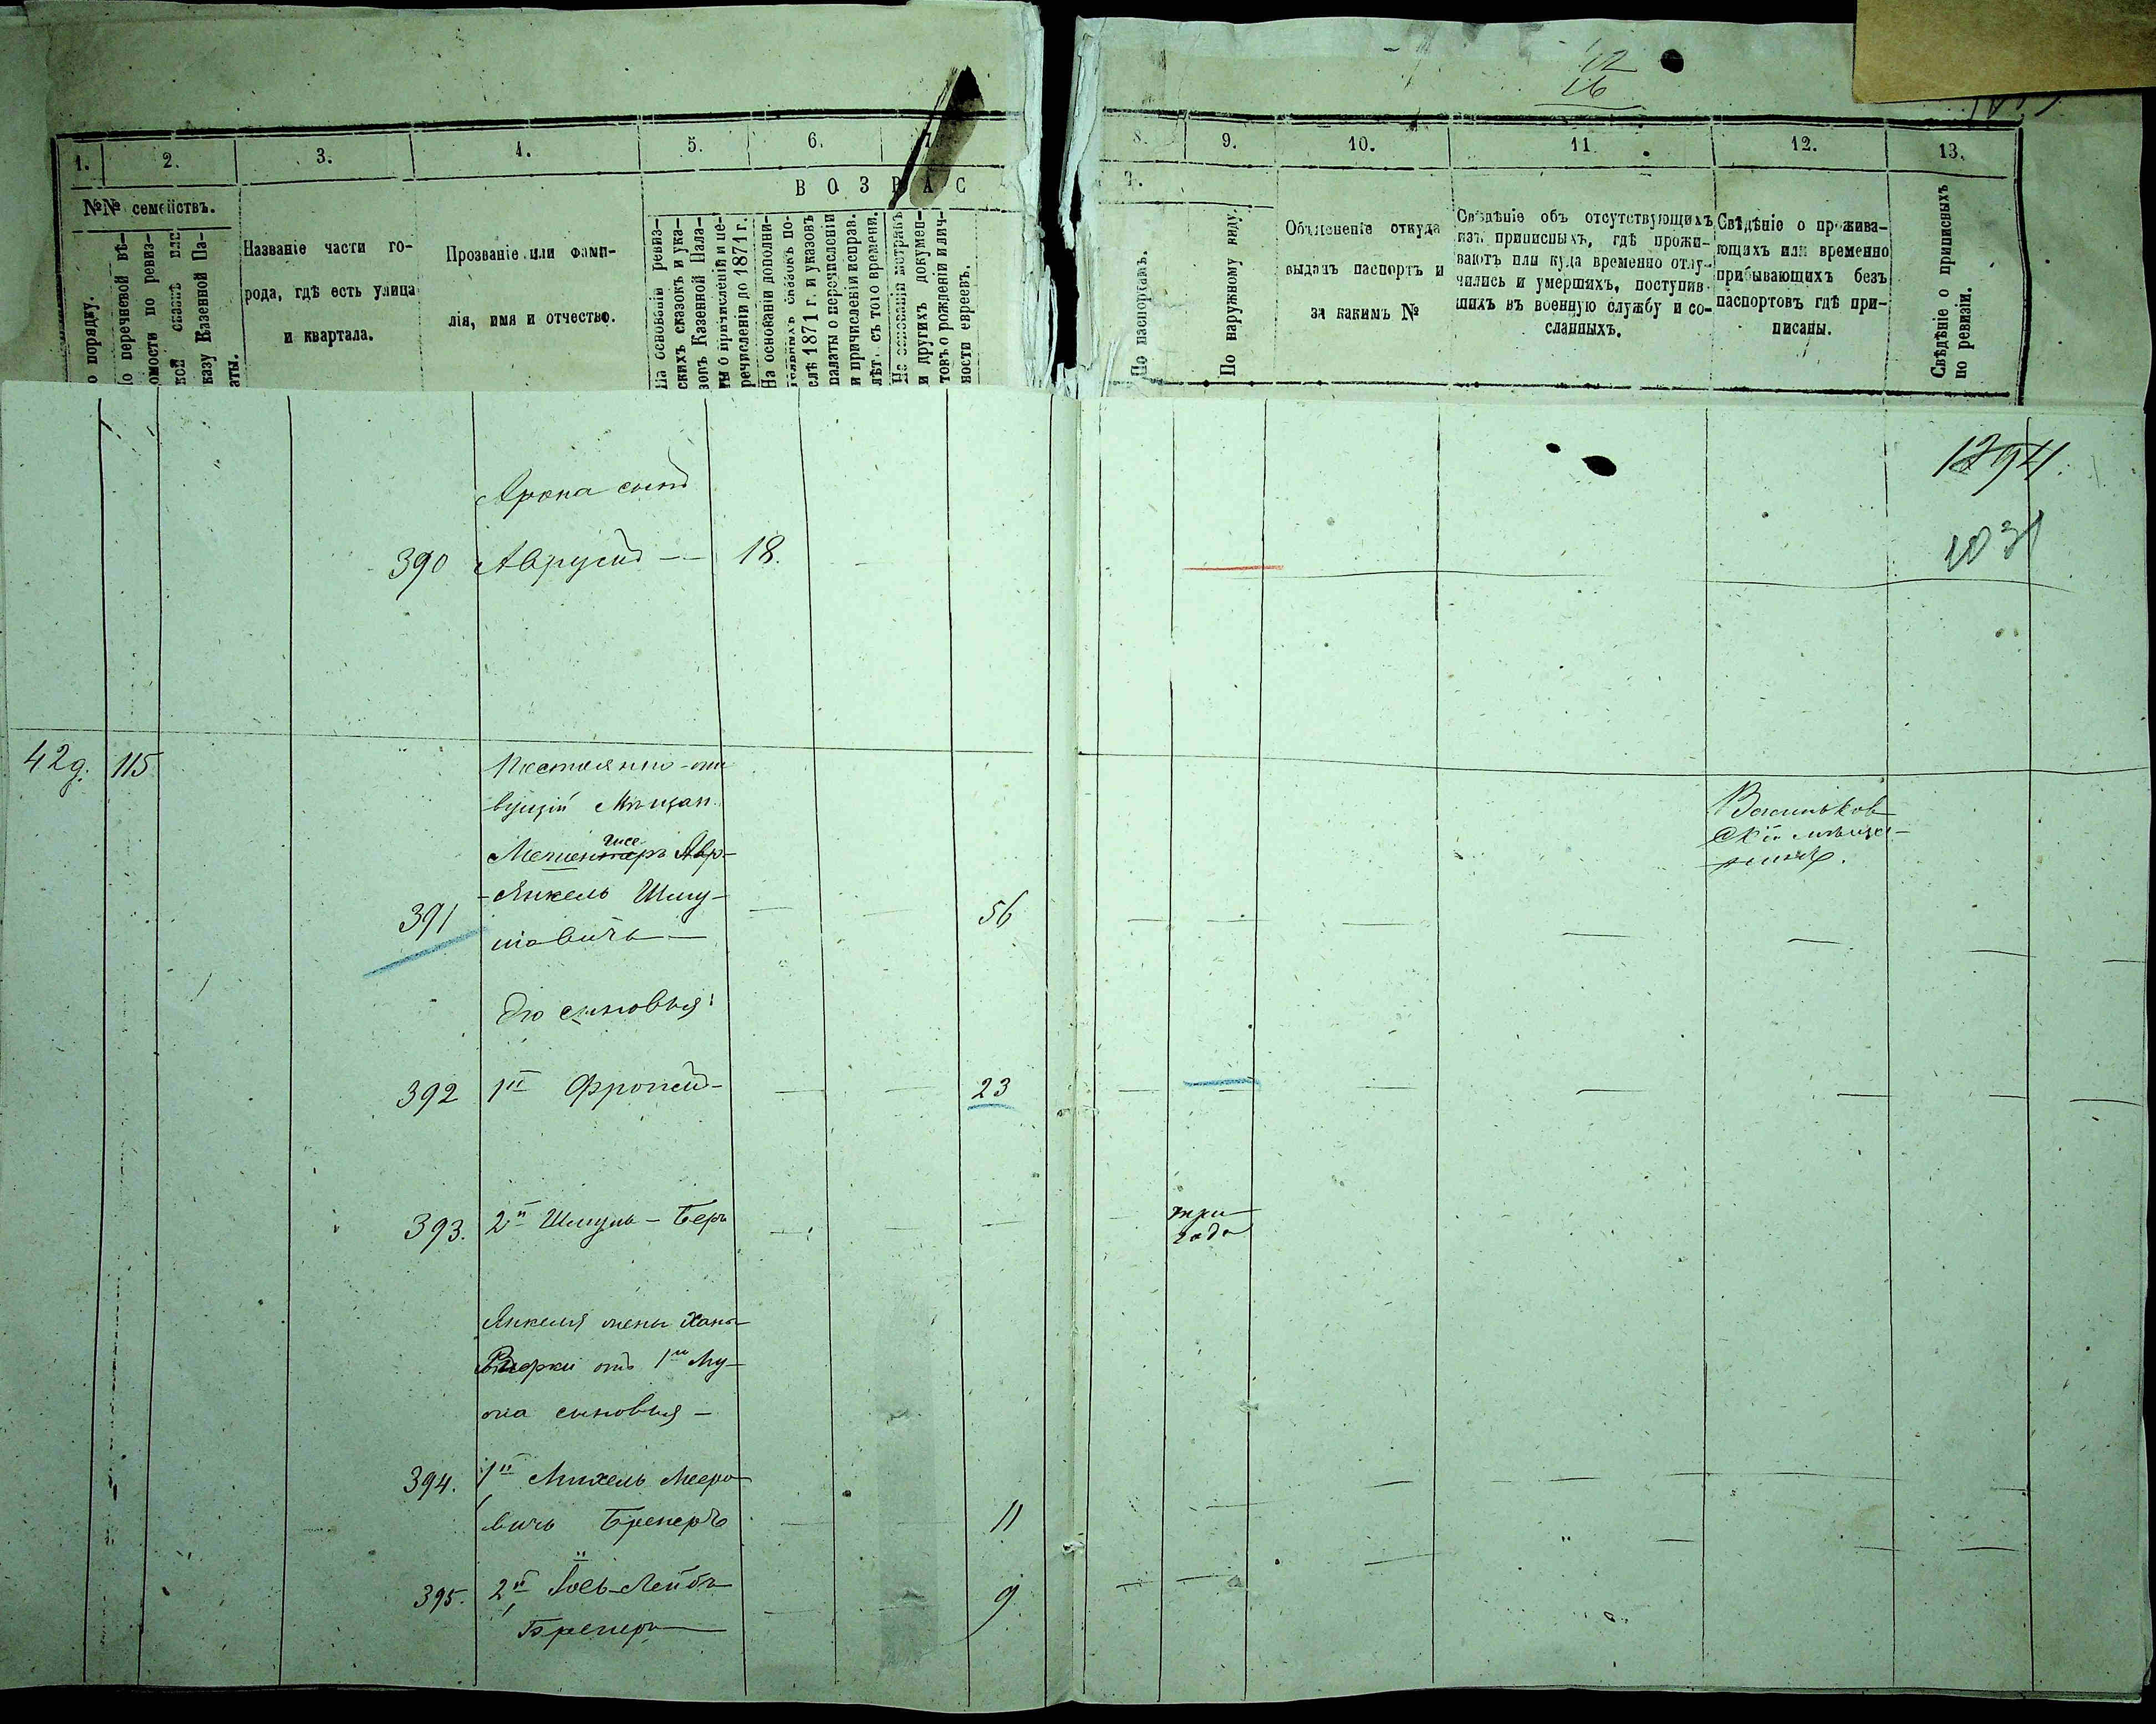 12
16
1.
2.
3.
4.
5.
6.
8.
9.
10.
11
12.
13.
ВОЗРАС
№№ семействъ.
о порядку.
о перечневой вѣ-
омости по ревиз-
кой сказкѣ или
казу Казенной Па-
аты.
Названіе части го-
рода, гдѣ есть улица
и квартала.
Прозваніе или фами-
лія, имя и отчество.
На основаніи ревиз-
скихъ сказокъ и ука-
зовъ Казенной Пала-
ты о причисленіи и пе-
речисленіи до 1871 г.
На основаніи дополни-
тельныхъ сказокъ по-
слѣ 1871 г. и указовъ
палаты о перечисленіи
и причисленіи исправ.
лѣтъ съ того времени.
На основаніи метрикъ
и другихъ докумен-
товъ о рожденіи и лич-
ности евреевъ.
По паспортамъ.
По наружному виду.
Объясненіе откуда
выданъ паспортъ и
за какимъ №
Свѣдѣніе объ отсутствующихъ
изъ приписныхъ, гдѣ прожи-
ваютъ или куда временно отлу-
чились и умершихъ, поступив-
шихъ въ военную службу и со-
сланныхъ.
Свѣдѣніе о прожива-
ющихъ или временно
прибывающихъ безъ
паспортовъ гдѣ при-
писаны.
Свѣдѣніе о приписныхъ
по ревизіи.
Арона сынъ
390 Аврумъ — 18.
1394.
1031
42 д. 115
вущій Мѣщан.
Янкель Шму-
391 — — 56 — — — — — — —
Васильков
скій мѣща-
нинъ.
Его сыновья:
392 1й — — 23 — — — — — —
393. 2й Шмуль-Беръ — — — — три
года
Янкеля жены Ханы
Ривки отъ 1го му-
жа сыновья —
394. 1й Михель Мееро
вичь Бренеръ — 11
395. 2й Іось-Лейбъ — 9
Бренеръ